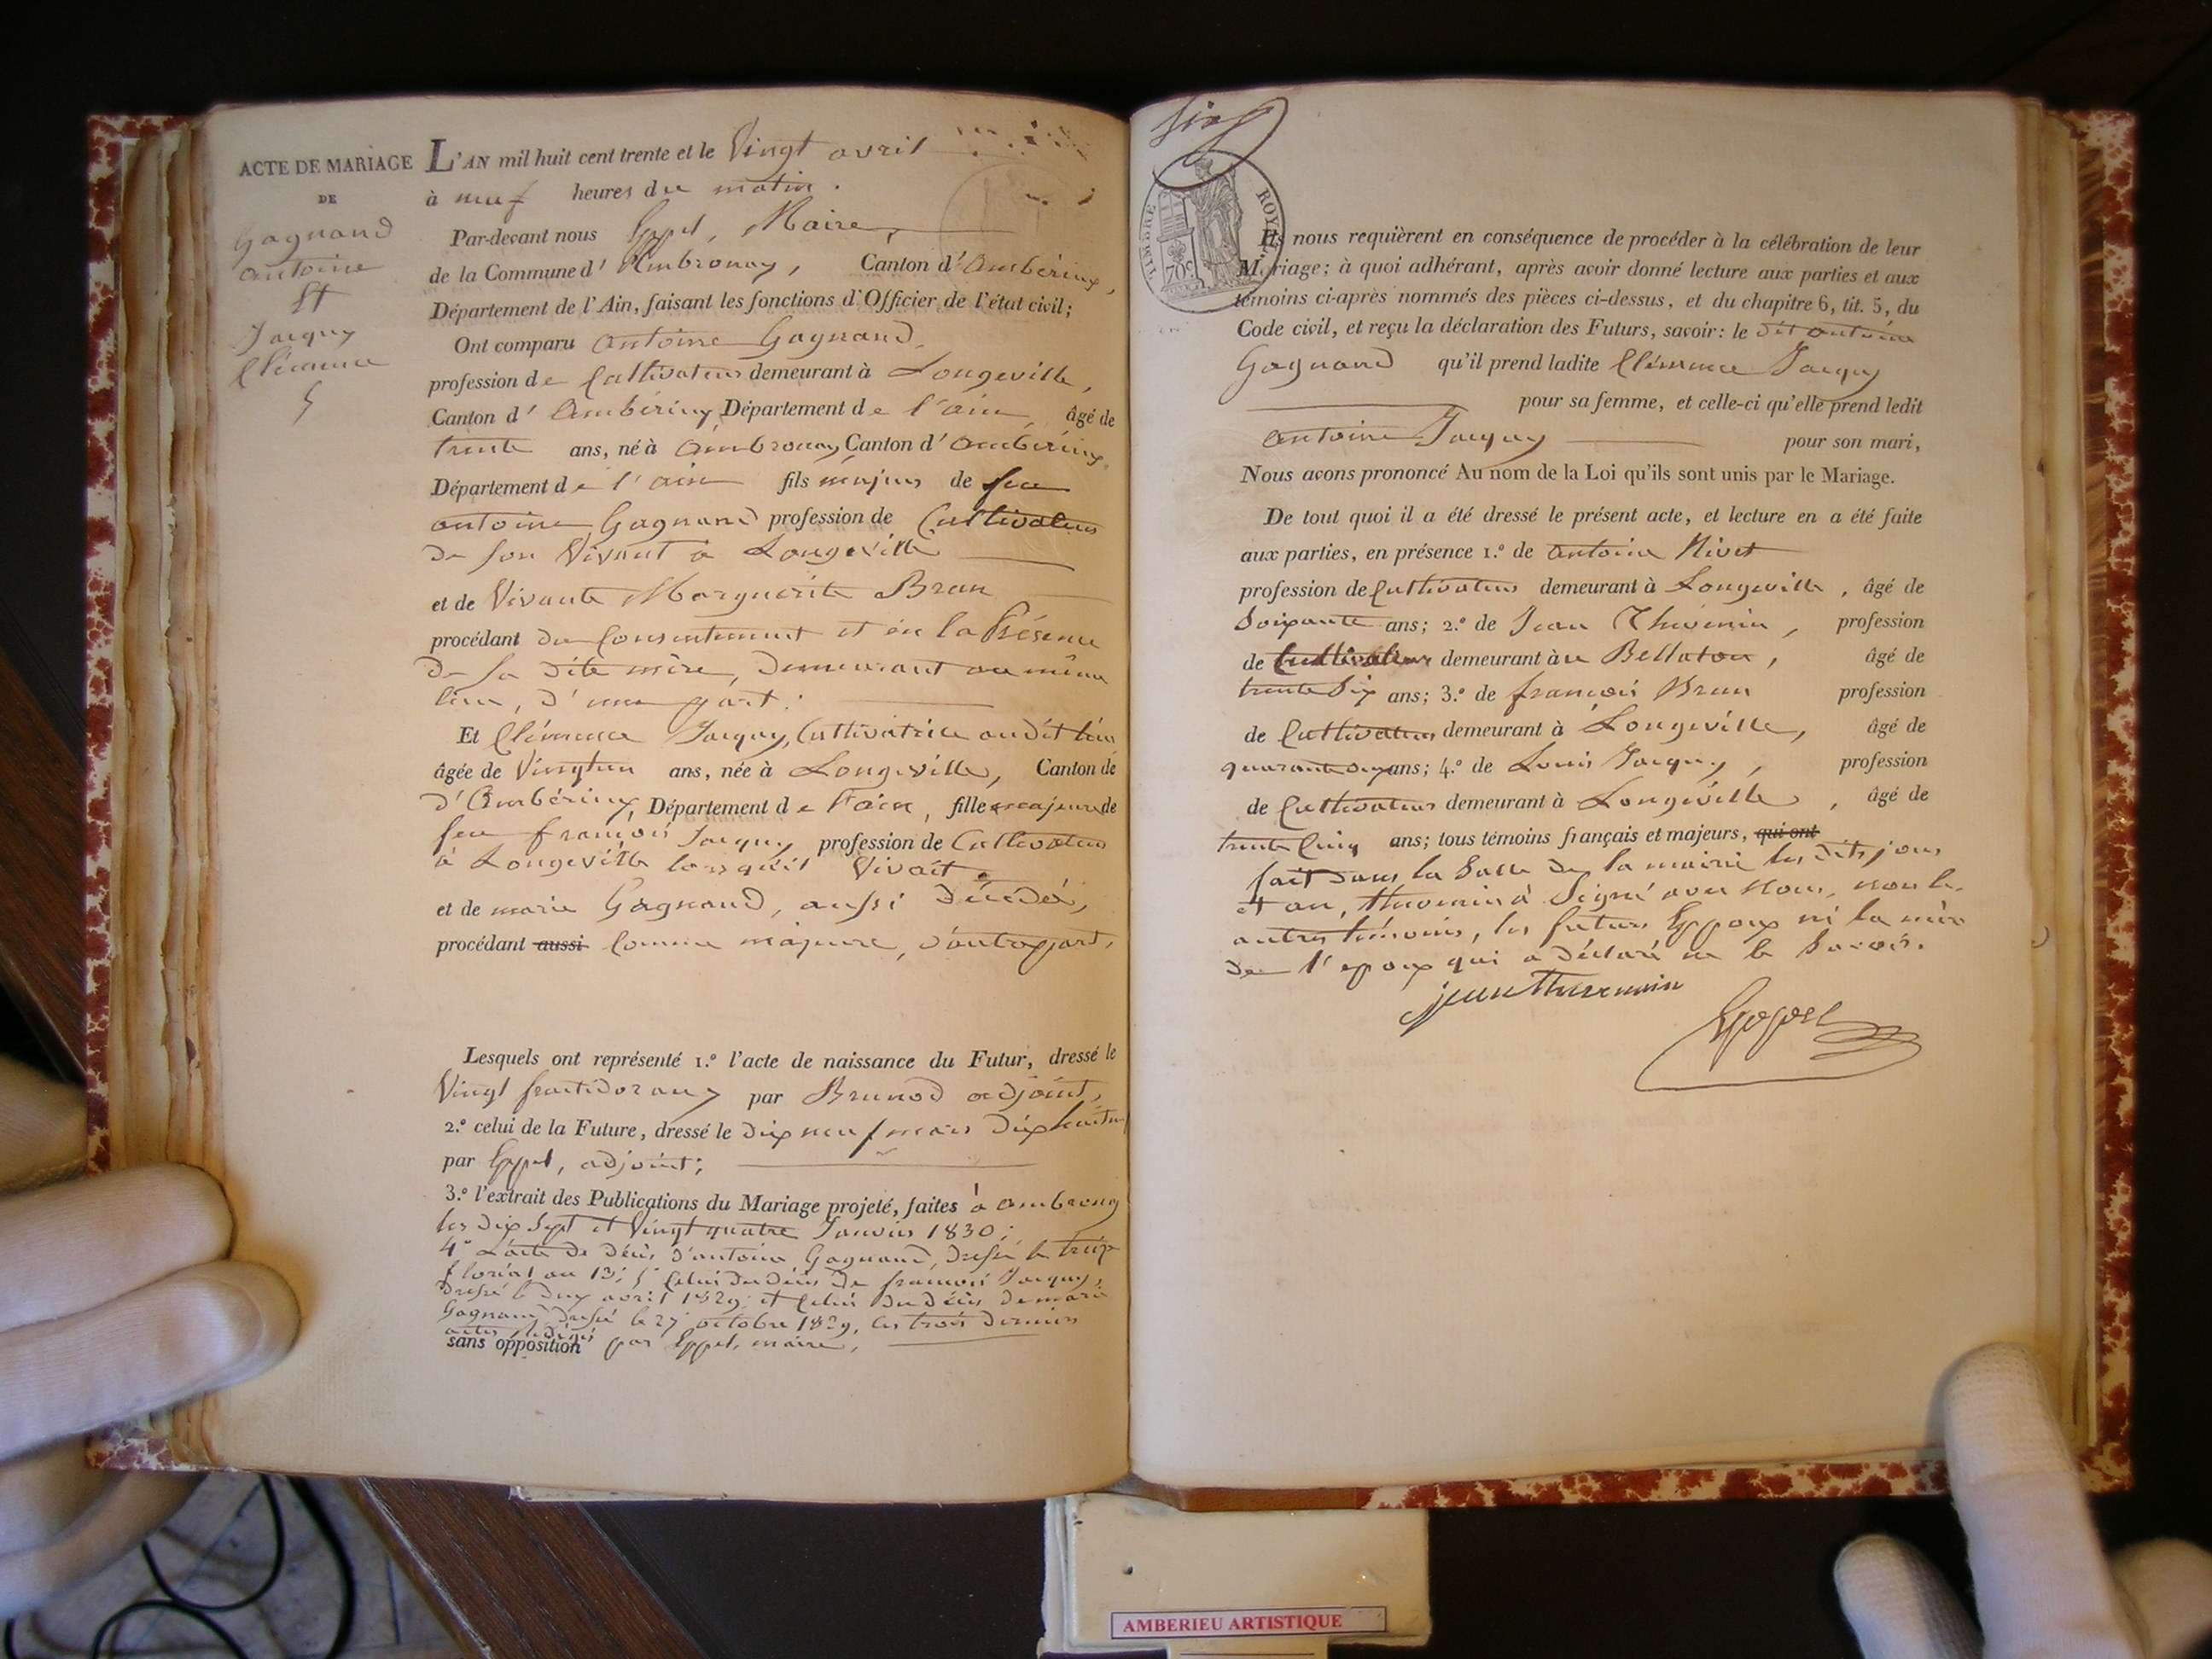 ACTE DE MARIAGE
DE
Gagnand
antoine
Et
Jacquy
Clémence
L'AN mil huit cent trente et le Vingt avril
à neuf heures du matin.
Par-devant nous Eppel, Maire,
de la Commune d'Ambronay, Canton d'Ambérieux,
Département de l'Ain, faisant les fonctions d'Officier de l'état civil;
Ont comparu Antoine Gagnand,
profession de Cultivateur demeurant à Longeville,
Canton d'Ambérieux, Département de l'ain, âgé de
trente ans, né à Ambronay Canton d'Ambérieux,
Département de l'ain fils majeur de feu
antoine Gagnand profession de Cultivateur
de son Vivant à Longeville
et de Vivante Marguerite Brun
procédant du Consentement et en la Présence
de sa dite mère, demeurant au même
lieu, d'une part.
Et Clémence Jacquy, Cultivatrice audit lieu
âgée de Vingtun ans, née à Longeville, Canton de
d'Ambérieux, Département de l'ain, fille majeure de
feu françois Jacquy profession de Cultivateur
à Longeville lorsqu'il Vivait
et de marie Gagnand, aussi décédée,
procédant aussi Comme majeure, d'autre part,
Lesquels ont représenté 1.º l'acte de naissance du Futur, dressé le
Vingt fructidor an 7 par Brunod adjoint,
2.º celui de la Future, dressé le dix neuf mars
par Eppel, adjoint;
3.º l'extrait des Publications du Mariage projeté, faites à Ambronay
les dix Sept et Vingt quatre Janvier 1830;
4º L'acte de décès d'antoine Gagnand, dressé le treize
floréal an 13; 5º Celui du décès de françois Jacquy,
dressé le deux avril 1829 et Celui du décès de marie
Gagnand dressé le 27 octobre 1829, les trois derniers
actes rédigés
sans opposition par Eppel, maire,
TIMBRE ROYAL
70c
Ils nous requièrent en conséquence de procéder à la célébration de leur
Mariage; à quoi adhérant, après avoir donné lecture aux parties et aux
témoins ci-après nommés des pièces ci-dessus, et du chapitre 6, tit. 5, du
Code civil, et reçu la déclaration des Futurs, savoir: le dit antoine
Gagnand qu'il prend ladite Clémence Jacquy
pour sa femme, et celle-ci qu'elle prend ledit
antoine Jacquy pour son mari,
Nous avons prononcé Au nom de la Loi qu'ils sont unis par le Mariage.
De tout quoi il a été dressé le présent acte, et lecture en a été faite
aux parties, en présence 1.º de antoine Nivet
profession de Cultivateur demeurant à Longeville, âgé de
Soixante ans; 2.º de Jean Thévenin, profession
de Cultivateur demeurant àu Bellaton, âgé de
trente Six ans; 3.º de françois Brun profession
de Cultivateur demeurant à Longeville, âgé de
quarante ans; 4.º de Louis Jacquy, profession
de Cultivateur demeurant à Longeville, âgé de
trente Cinq ans; tous témoins français et majeurs, qui ont
fait dans la Salle de la mairie les dits jour
et an, Thevenin à Signé avec Nous, non les
autres témoins, les futurs Eppoux ni la mère
de l'epoux qui a déclaré ne le Savoir.
jean Thevenin
Eppel
AMBERIEU ARTISTIQUE